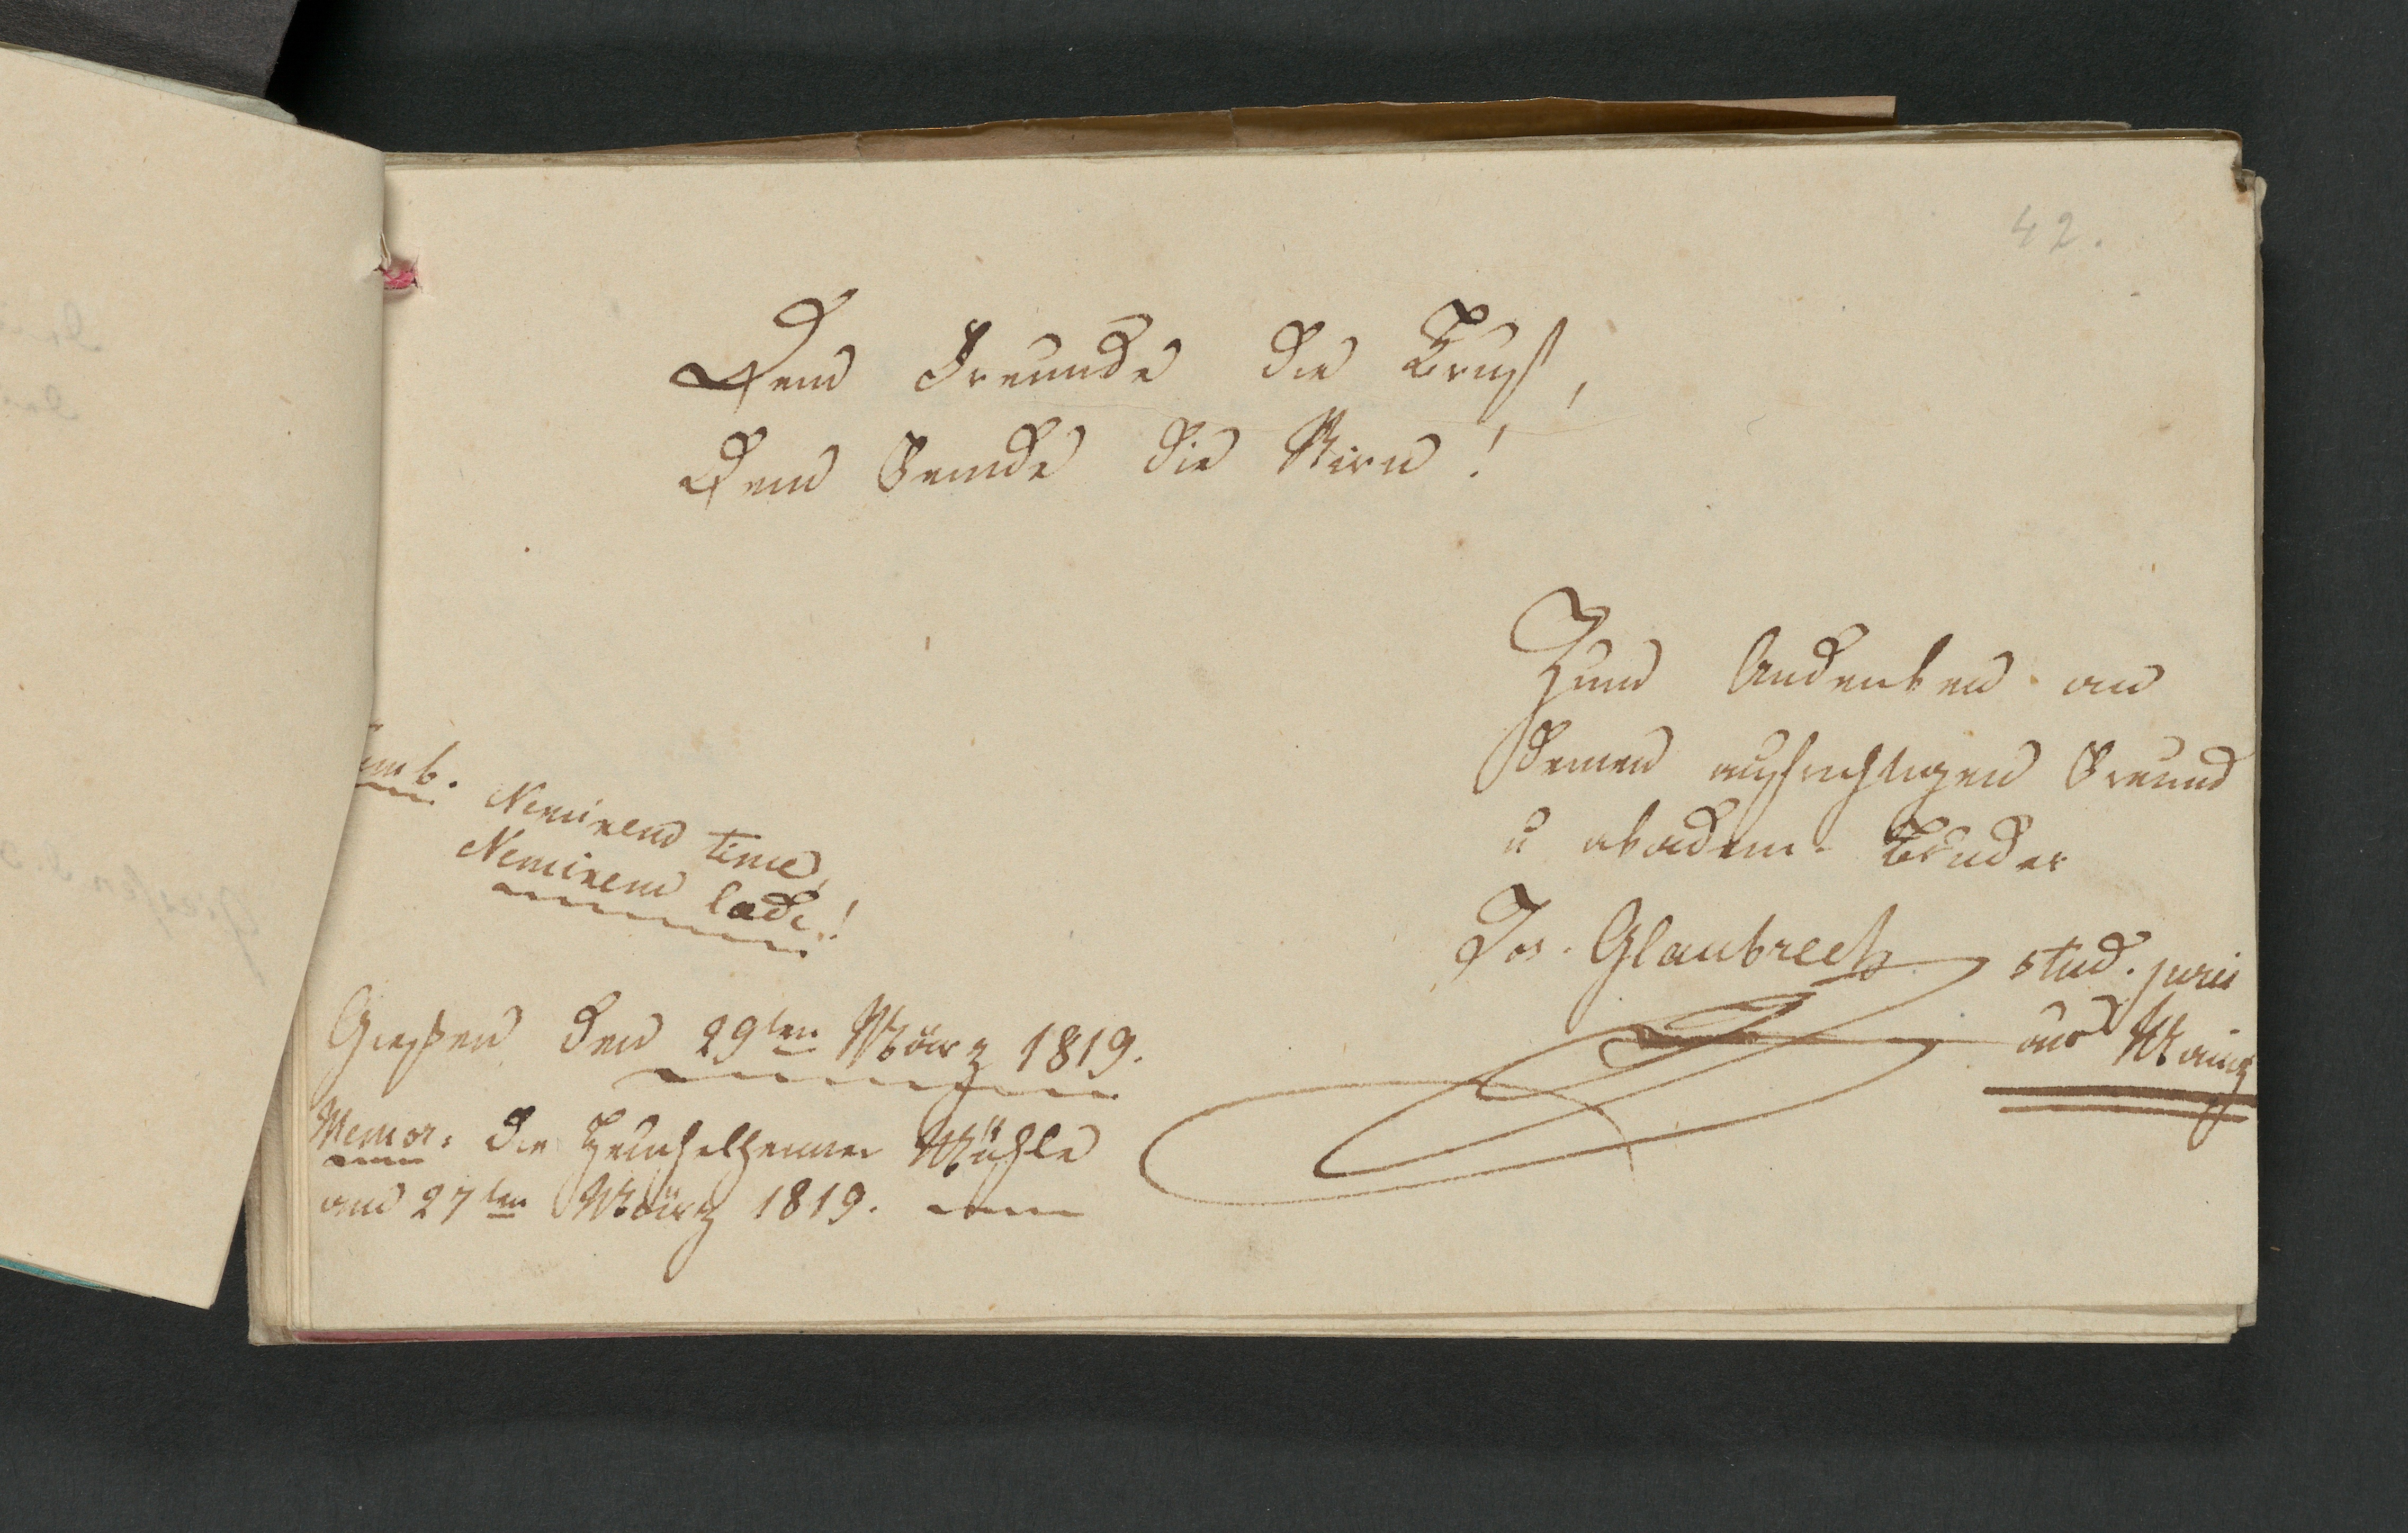 42.
Dem Freunde die Brust,
Dem Feinde die Stirn!
Zum Andenken an
Deinen aufrichtigen Freund
u akadem. Bruder
Jos. Glaubrech stud. juris
aus Mainz
Symb. Neminem time,
Neminem laede!
Gießen den 29ten März 1819.
Memor: die Heuchelheimer Mühle
am 27ten März 1819.